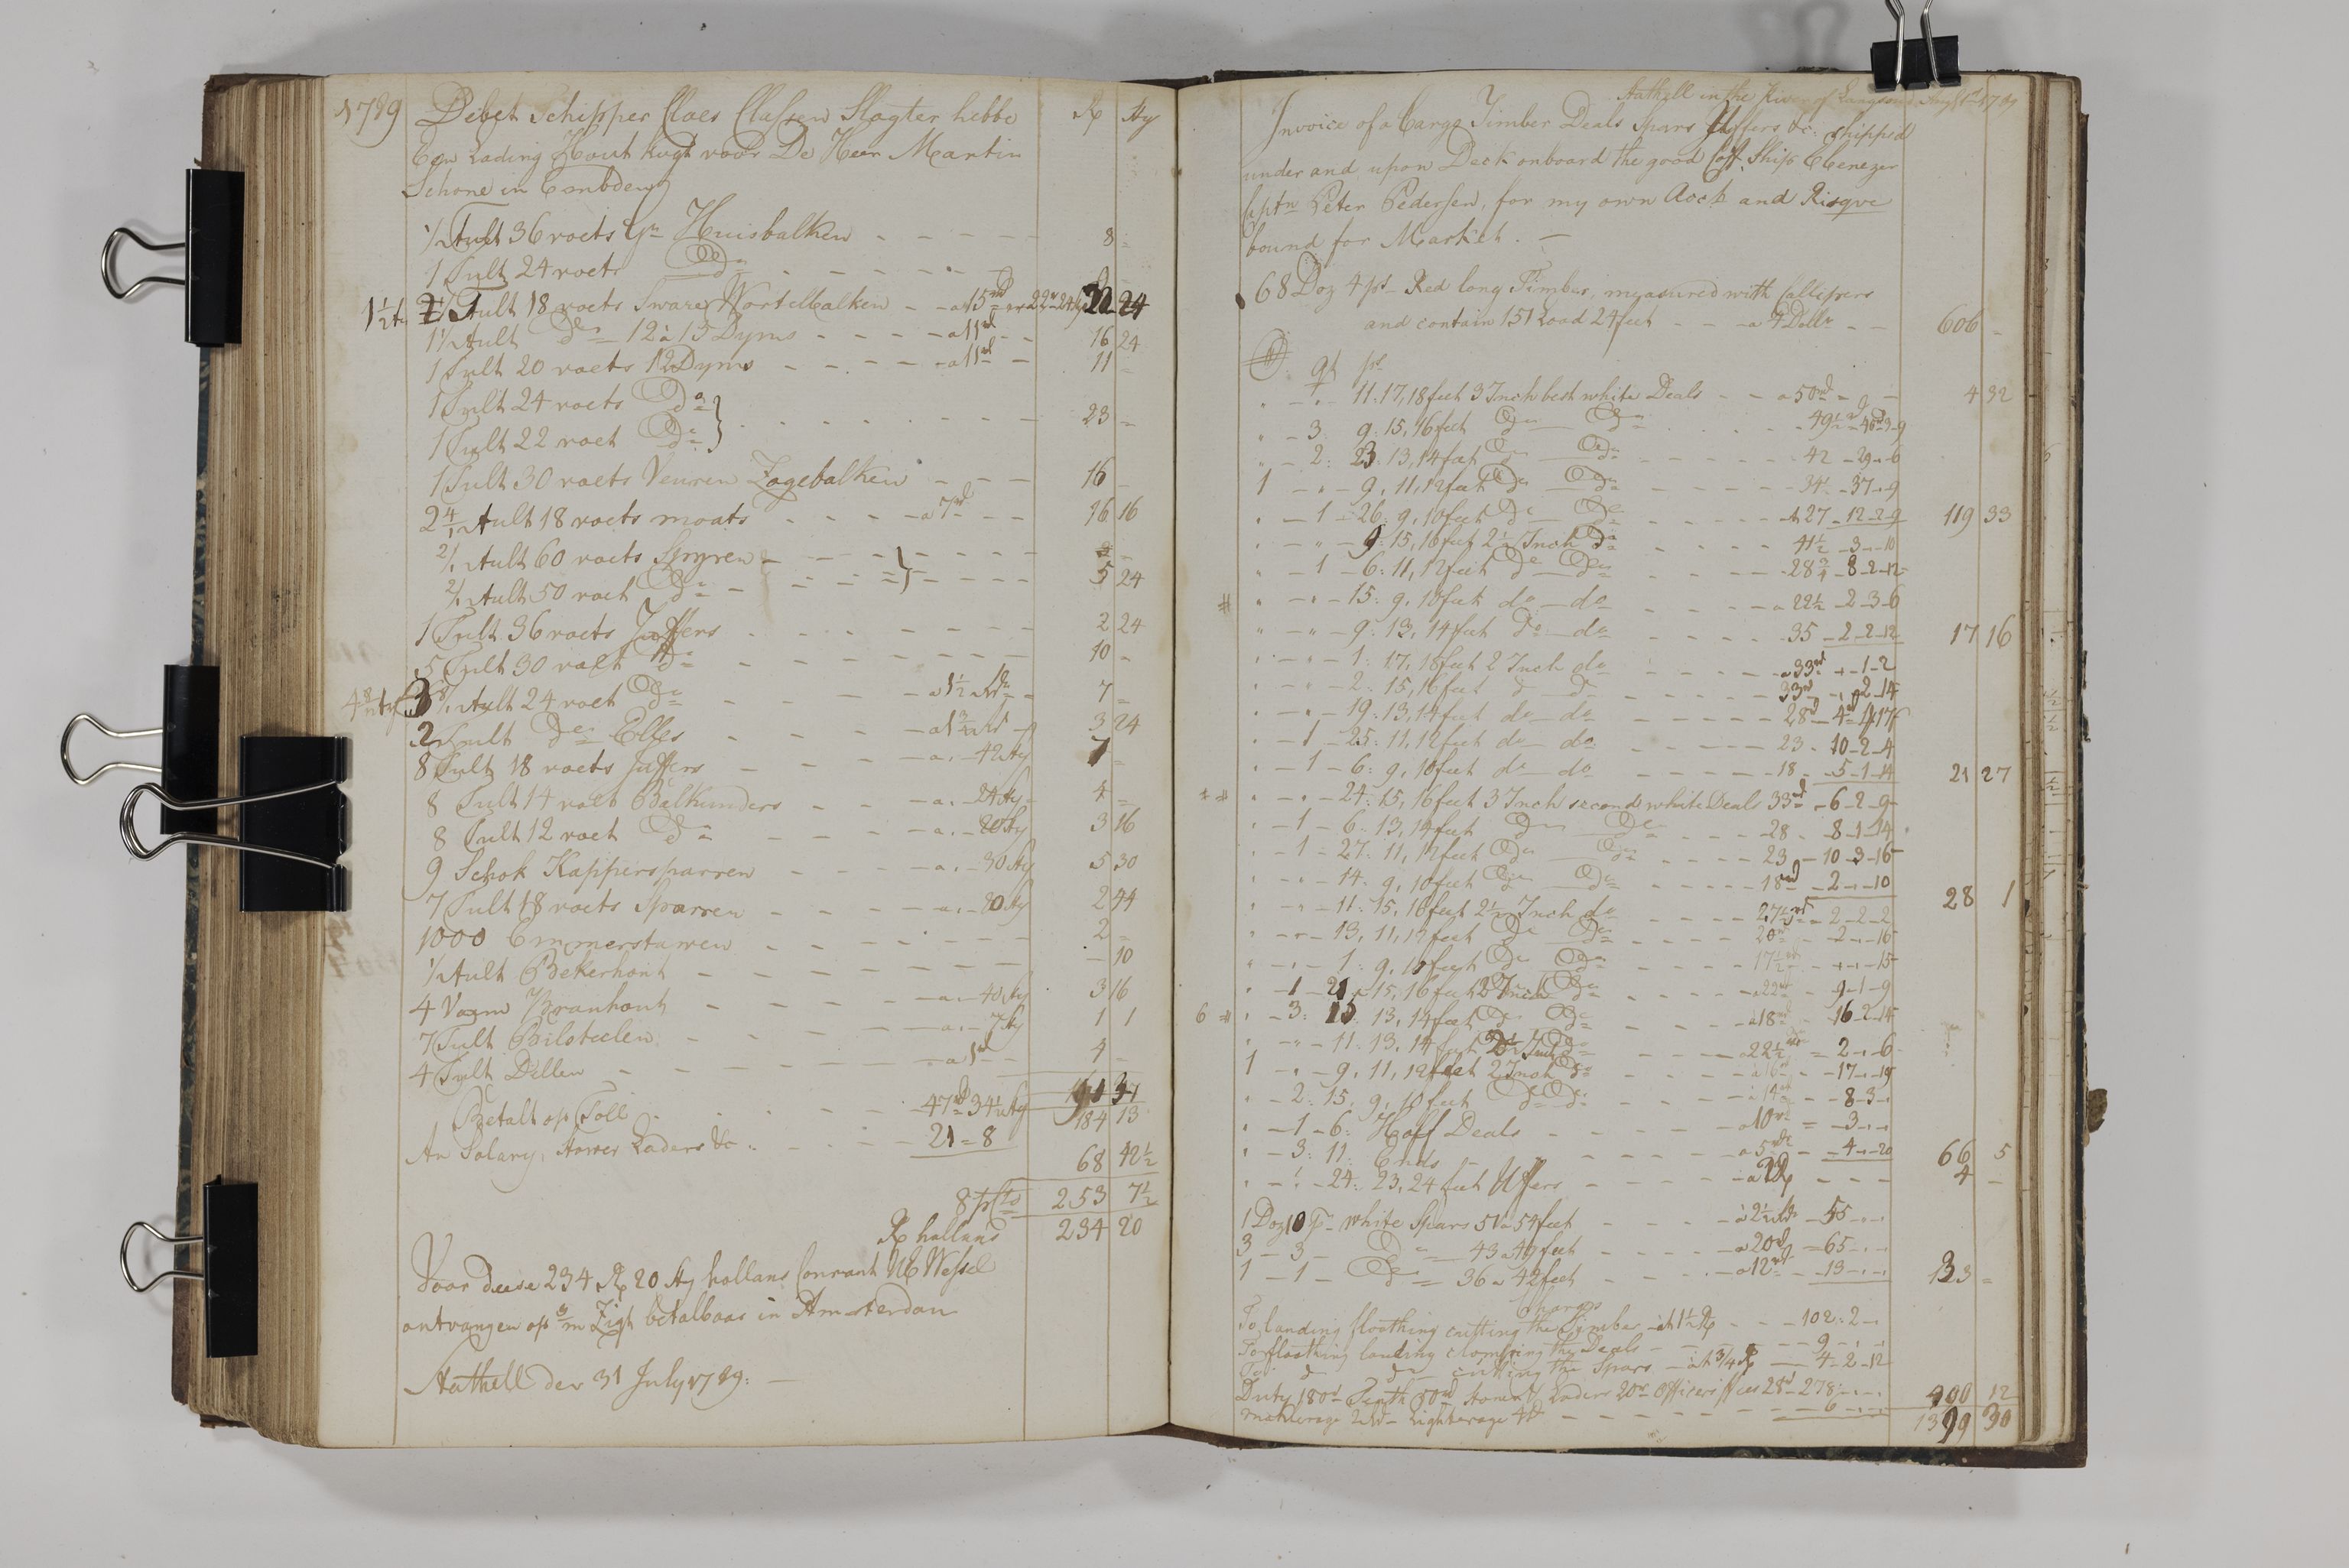 1789 Debet Schipper Claes Classen Slagter hebbe R Sty
Een Lading Hout kogt voor De Heer Martin
Schone in Embden
1/2 Tult 36 voets Gr Huisbalken 8 =
1 Tult 24 voets Do
Tult 18 voets Sware Wortelbalken 24
1 1/2 Tult Do 12 a 13 Dyms a 11 rd 16 24
1 Tult 20 voets 12 Dyms a 11 rd 11 =
1 Tult 24 voets Do
1 Tult 22 voet Do } 23 =
1 Tult 30 voets Veuren Zagebalken 16 -
Tult 18 voets moats a 7 rd 16 16
Tult 60 voets Spyren
Tult 50 voet Do } 5 24
1 Tult 36 voets Juffers 2 24
5 Tult 30 voet Do 10 -
Tult 24 voet Do a 1 1/2 7 =
2 Tult Do Elles a 1 3/4 3 24
8 Tult 18 voets Juffers a 42 Sty 7 =
8 Tult 14 voet Balkunders a 24 Sty 4 =
8 Tult 12 voet Do a 20 Sty 3 16
9 Schok Kappersparren a 30 Sty 5 30
7 Tult 18 voets Sparren a 20 Sty 2 44
1000 Emmerstawen 2 =
1/2 Tult Bekerhout - 10
4 Vaam Branhout a 40 Sty 3 16
7 Tult Bilsteelen a 7 Sty 1 1
4 Tult Dillen a 1 rd 4 -
Betalt op Toll 47 rd 34 1/2 Sty 184 13
An Solary, Laders &c 21 = 8
68 42 1/2
8 prCto 253 7 1/2
R hollans 234 20
Voor deese 234 R 20 Sty hollans Courant Wessel
ontvangen op 3/m Zigt betalbaar in Amsterdam
Stathell den 31 July 1789. -
Stathell in the River of Langesund Augst 1789
Invoice of a Cargo Timber Deals Spars Uffers &c: shipped
under and upon Deck onboard the good Ship Ebenezer
Captn Peter Pedersen, for my own Acct and Risqve
bound for Market. -
68 Doz 4 ps Red long Timber, measured with Callipers
and contain 151 Load 24 feet a 4 Dollr 606 -
qt ps
11: 17, 18 feet 3 Inch best white Deals a 50 rd 4 32
3 9: 15, 16 feet Do Do 49 1/2
2: 23: 13, 14 feet Do Do 42 - 29 - 6
1 - 9, 11, 12 feet Do Do 34 - 37 - 9
1 - 26: 9, 10 feet Do Do 27 - 12 - 2 - 9 119 33
9: 15, 16 feet 2 1/2 Inch Do 41 1/2 - 3 - 10
1 - 6: 11, 12 feet Do Do 28 3/4 - 8 - 2 - 12
# 15: 9, 10 feet do do 22 1/2 - 2 - 3 - 6
9: 13, 14 feet Do do 35 - 2 - 2 - 12 17 16
1: 17, 18 feet 2 Inch do a 33 rd - 1 - 2
2: 15, 16 feet Do 33 rd - 2 - 14
19: 13, 14 feet do do 28
1 - 25: 11, 12 feet do do 23 - 10 - 2 - 4
1 - 6: 9, 10 feet do do 18 - 5 - 1 - 14 21 27
24: 15, 16 feet 3 Inch seconds white Deals 33 rd - 6 - 2 - 9
1 - 6: 13, 14 feet Do Do 28 - 8 - 1 - 14
1 - 27: 11, 12 feet Do Do 23 - 10 - 3 - 16
14: 9, 10 feet Do Do 18 rd - 2 - 10 28 1
11: 15, 16 feet 2 1/2 Inch do 27 1/2 - 2 - 2 - 2
13, 11, 12 feet Do Do 20 - 2 - 16
1: 9, 10 feet Do Do 17 1/2 - 15
1 - 21: 15, 16 feet 2 Inch Do a 22 - 9 - 1 - 9
6 # 3: 15: 13, 14 feet Do Do a 18 - 16 - 2 - 15
11: 13, 14 feet 2 1/2 Inch Do a 22 1/2 = 2 - 6
1 - 9, 11, 12 feet 2 Inch Do a 16 - 17 - 19
2: 15, 9, 10 feet Do Do a 14 - 8 - 3
1 - 6: Half Deals a 10 = 3
3: 11: Ends a 5 - 4 - 20 66 5
24: 23, 24 feet Uffers 4 -
1 Doz 10 ps white Spars 51 a 54 feet a 2 1/2 - 55
3 - 3 Do 43 a 49 feet a 20 = 65
1 - 1 Do 36 a 42 feet a 12 - 13 133 =
Charges
To landing floathing cutting the Timber at 1 1/2 R 102: 2
To floathing landing clomping the Deals 9
To do do cutting the Spars at 3/4 R 4 - 2 - 12
Duty 180 rd Tenth 50 rd Laders 20 rd Officers fees 28 rd - 278 400 12
Lighterage 4 rd 6 1399 30